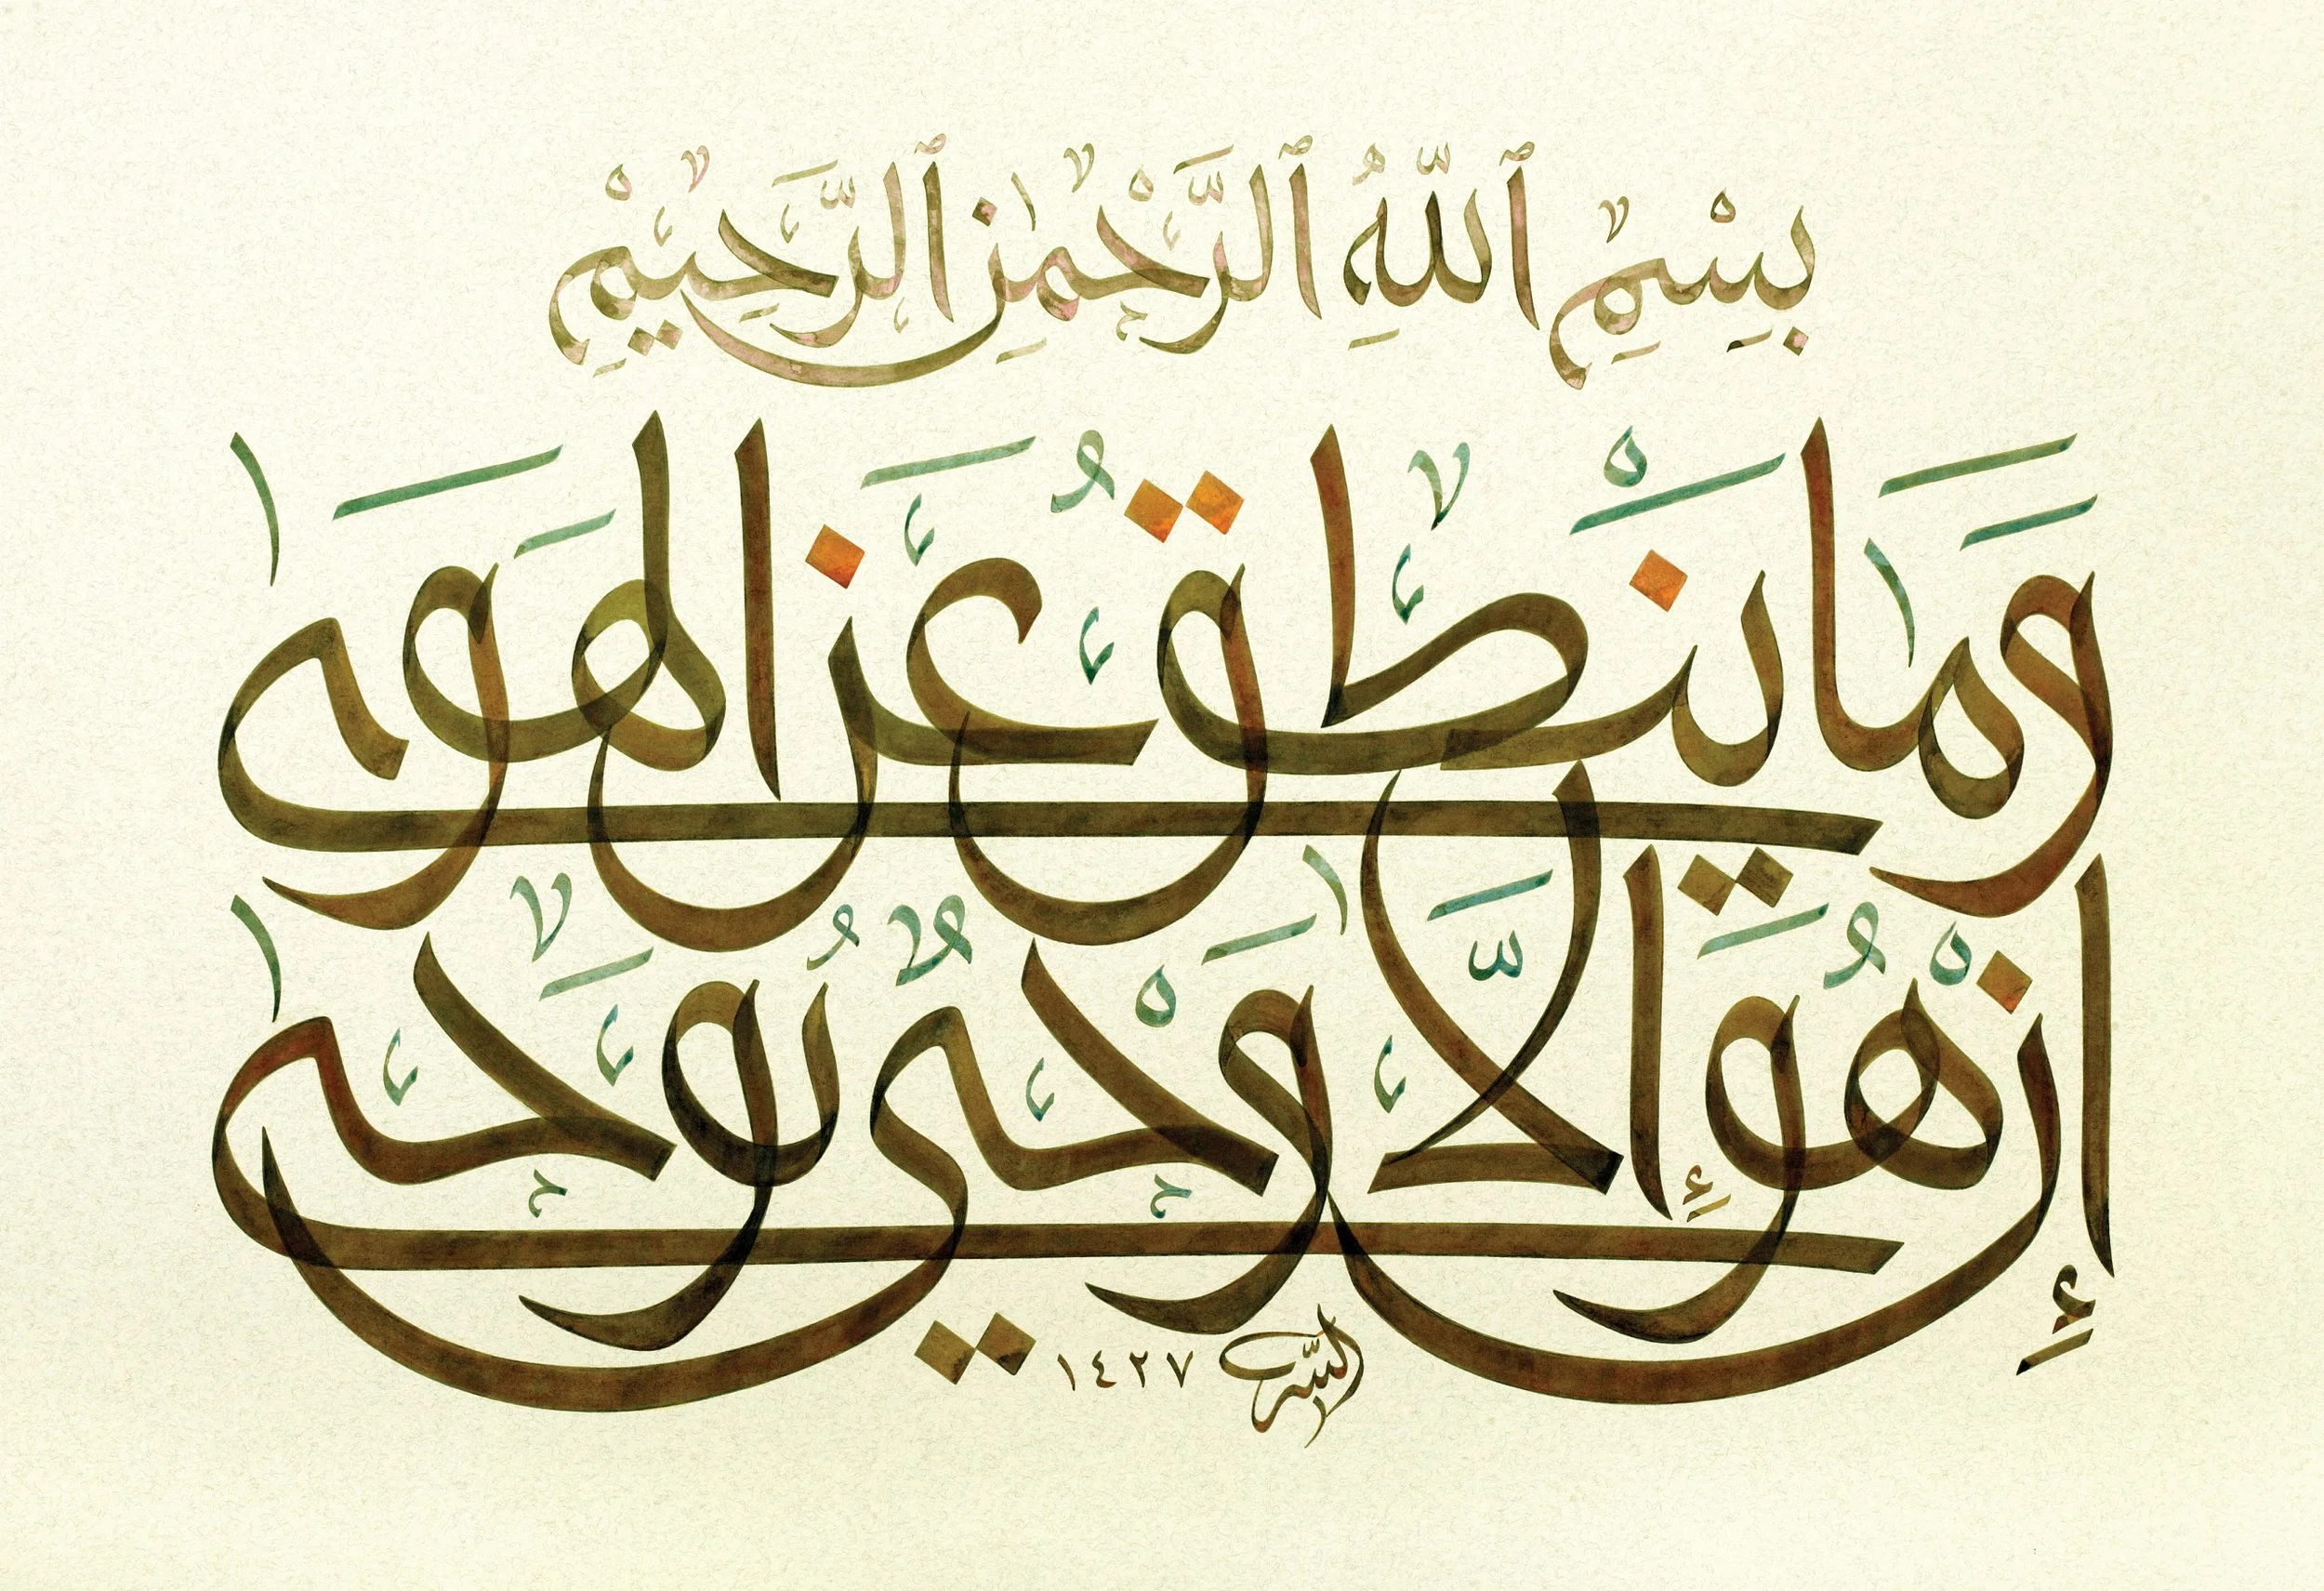 بِسْمِ ٱللَّهِ ٱلرَّحْمَٰنِ ٱلرَّحِيمِ
وَمَا يَنْطِقُ عَنِ الْهَوَىٰ
إِنْ هُوَ إِلَّا وَحْيٌ يُوحَىٰ
١٤٢٧